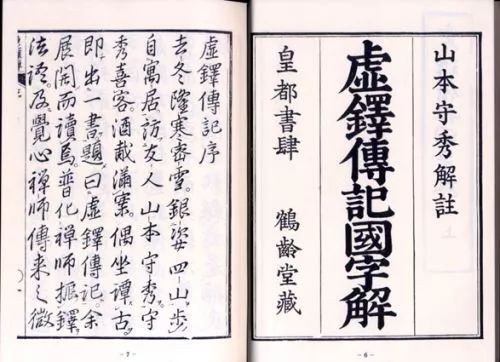 山本守秀解註
虛鐸傳記國字解
皇都書肆 鶴齡堂藏
- 6 -
虛鐸傳記序
去冬隆寒密雪。銀姿四山。步
自寓居。訪友人山本守秀。守
秀喜客。酒載滿案。偶坐譚古。
即出一書。題曰虛鐸傳記。余
展閱而讀焉。普化禪師振鐸。
法語。及覺心禪師傳来之微
- 7 -